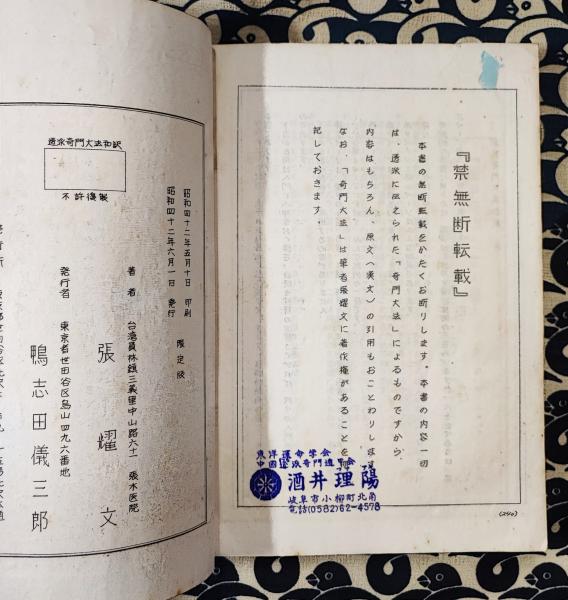 『禁無断転載』
本書の無断転載をかたくお断りします。本書の内容一切
は、透派に伝えられた「奇門大法」によるものですから、
内容はもちろん、原文(漢文)の引用もおことわりします。
なお、「奇門大法」は筆者張耀文に著作権があることを明
記しておきます。
東洋運命学会
中国透派奇門遁甲会
酒井理陽
岐阜市小柳町北角
電話(0582)62-4578
(240)
透派奇門大法和訳
不許複製
昭和四十二年五月十日 印刷
昭和四十二年六月一日 発行
限定版
著者 台湾員林鎮三義里中山路六十一 張木医院
張耀文
発行者 東京都世田谷区烏山四九六番地
鴨志田儀三郎